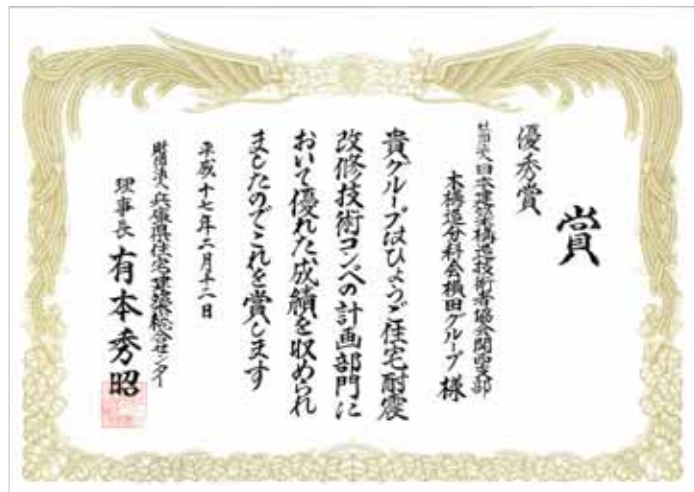 賞
優秀賞
社団法人日本建築構造技術者協会関西支部
木構造分科会横田グループ 様
貴グループはひょうご住宅耐震
改修技術コンペの計画部門に
おいて優れた成績を収められ
ましたのでこれを賞します
平成十七年二月十二日
財団法人兵庫県住宅建築総合センター
理事長 有本秀昭